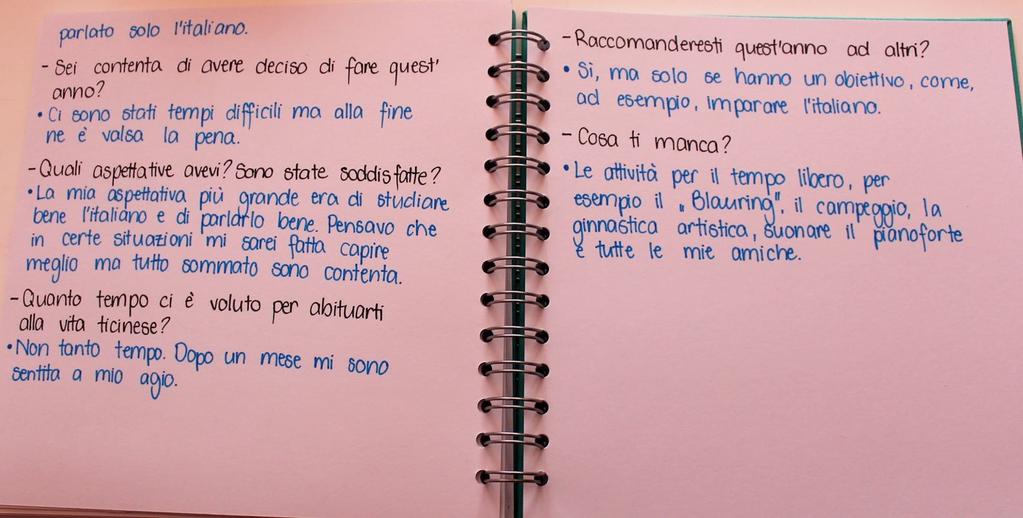 parlato solo l'italiano.
- Sei contenta di avere deciso di fare quest'
anno?
• Ci sono stati tempi difficili ma alla fine
ne è valsa la pena.
- Quali aspettative avevi? Sono state soddisfatte?
• La mia aspettativa più grande era di studiare
bene l'italiano e di parlarlo bene. Pensavo che
in certe situazioni mi sarei fatta capire
meglio ma tutto sommato sono contenta.
- Quanto tempo ci è voluto per abituarti
alla vita ticinese?
• Non tanto tempo. Dopo un mese mi sono
sentita a mio agio.
- Raccomanderesti quest'anno ad altri?
• Sì, ma solo se hanno un obiettivo, come,
ad esempio, imparare l'italiano.
- Cosa ti manca?
• Le attività per il tempo libero, per
esempio il „Blauring", il campeggio, la
ginnastica artistica, suonare il pianoforte
e tutte le mie amiche.